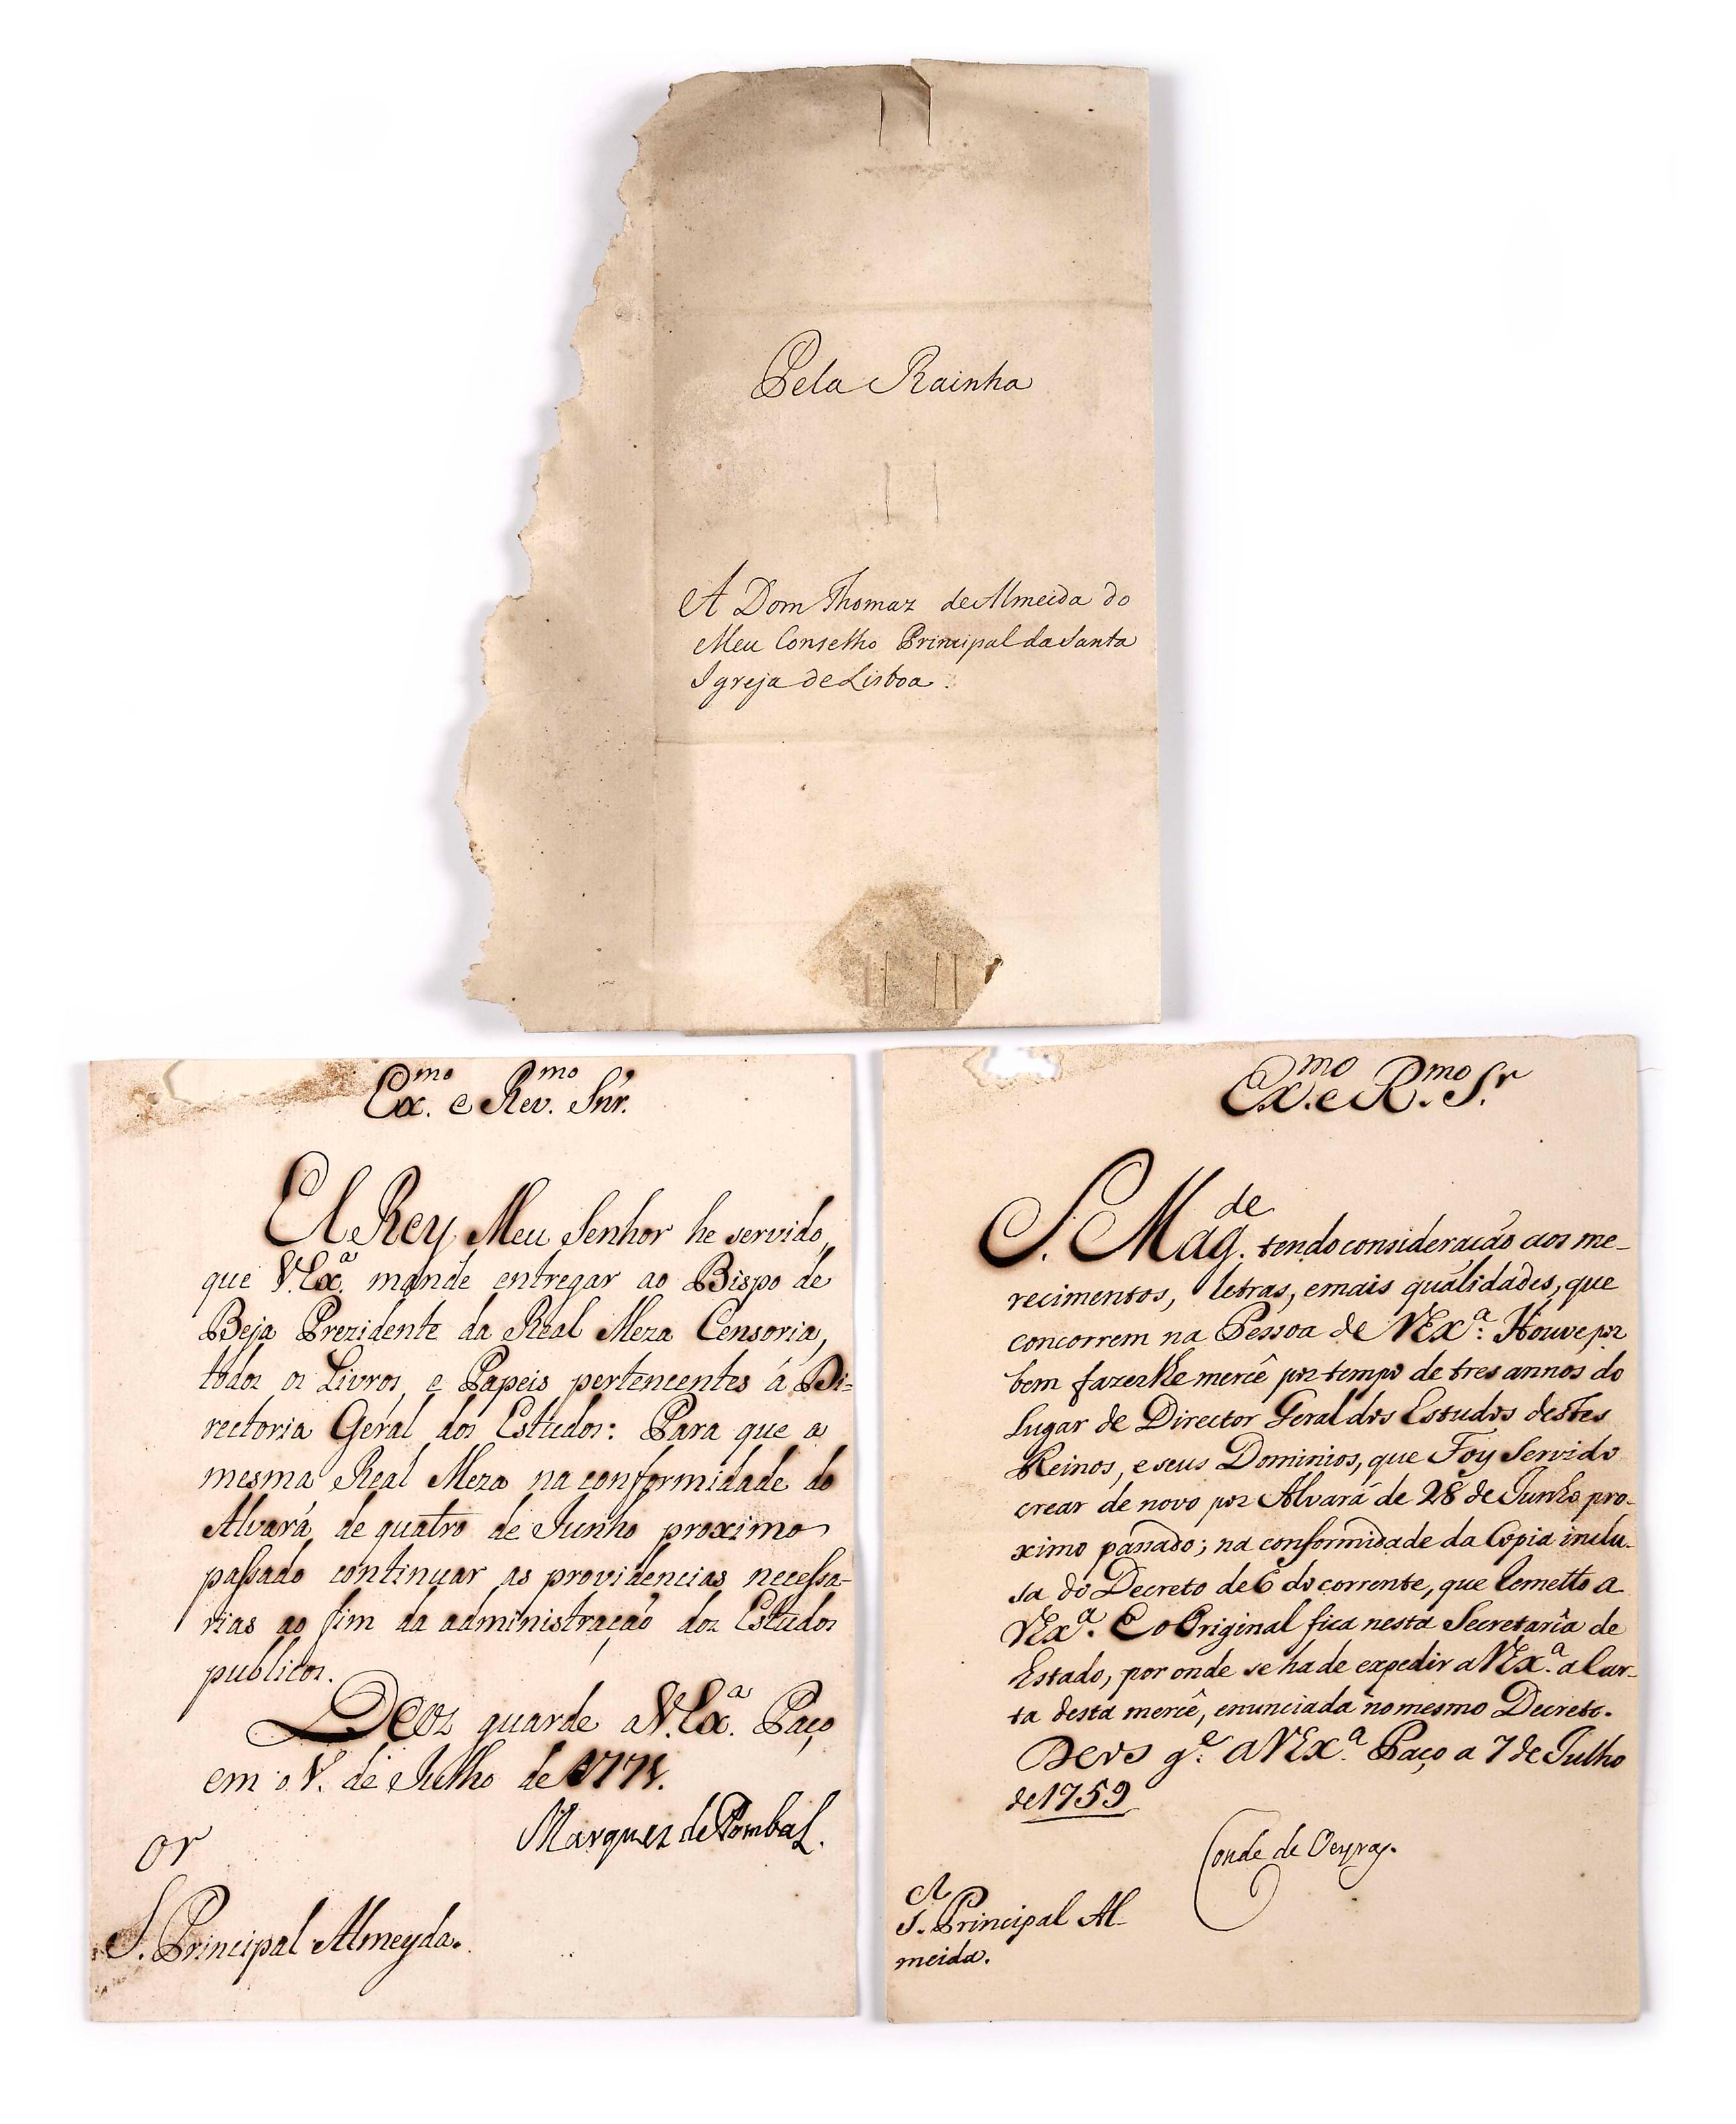 Pela Rainha
A Dom Thomaz de Almeida do
Meu Conselho Principal da Santa
Igreja de Lisboa.
Ex.mo e Rev.mo Snr.
El Rey Meu Senhor he servido,
que V. Ex.a mande entregar ao Bispo de
Beja Prezidente da Real Meza Censoria,
todos os Livros, e Papeis pertencentes á Di=
rectoria Geral dos Estudos: Para que a
mesma Real Meza na conformidade do
Alvará de quatro de Junho proximo
passado continuar as providencias necessa-
rias ao fim da administração dos Estudos
publicos.
Deos guarde a V. Ex.a Paço
em de Julho de 1771.
Marquez de Pombal.
S. Principal Almeyda.
Ex.mo e R.mo S.r
S. Mag.de tendo consideração aos me-
recimentos, letras, e mais qualidades, que
concorrem na Pessoa de V Ex.a: Houve por
bem fazer lhe mercê por tempo de tres annos do
lugar de Director Geral dos Estudos destes
Reinos, e seus Dominios, que Foy Servido
crear de novo por Alvará de 28 de Junho pro-
ximo passado; na conformidade da Copia inclu-
sa do Decreto de 6 do corrente, que remetto a
V Ex.a. E o Original fica nesta Secretaria de
Estado, por onde se ha de expedir a V Ex.a a Car-
ta desta mercê, enunciada no mesmo Decreto.
Deos g.e a V Ex.a Paço a 7 de Julho
de 1759
Conde de Oeyras.
S. Principal Al-
meida.